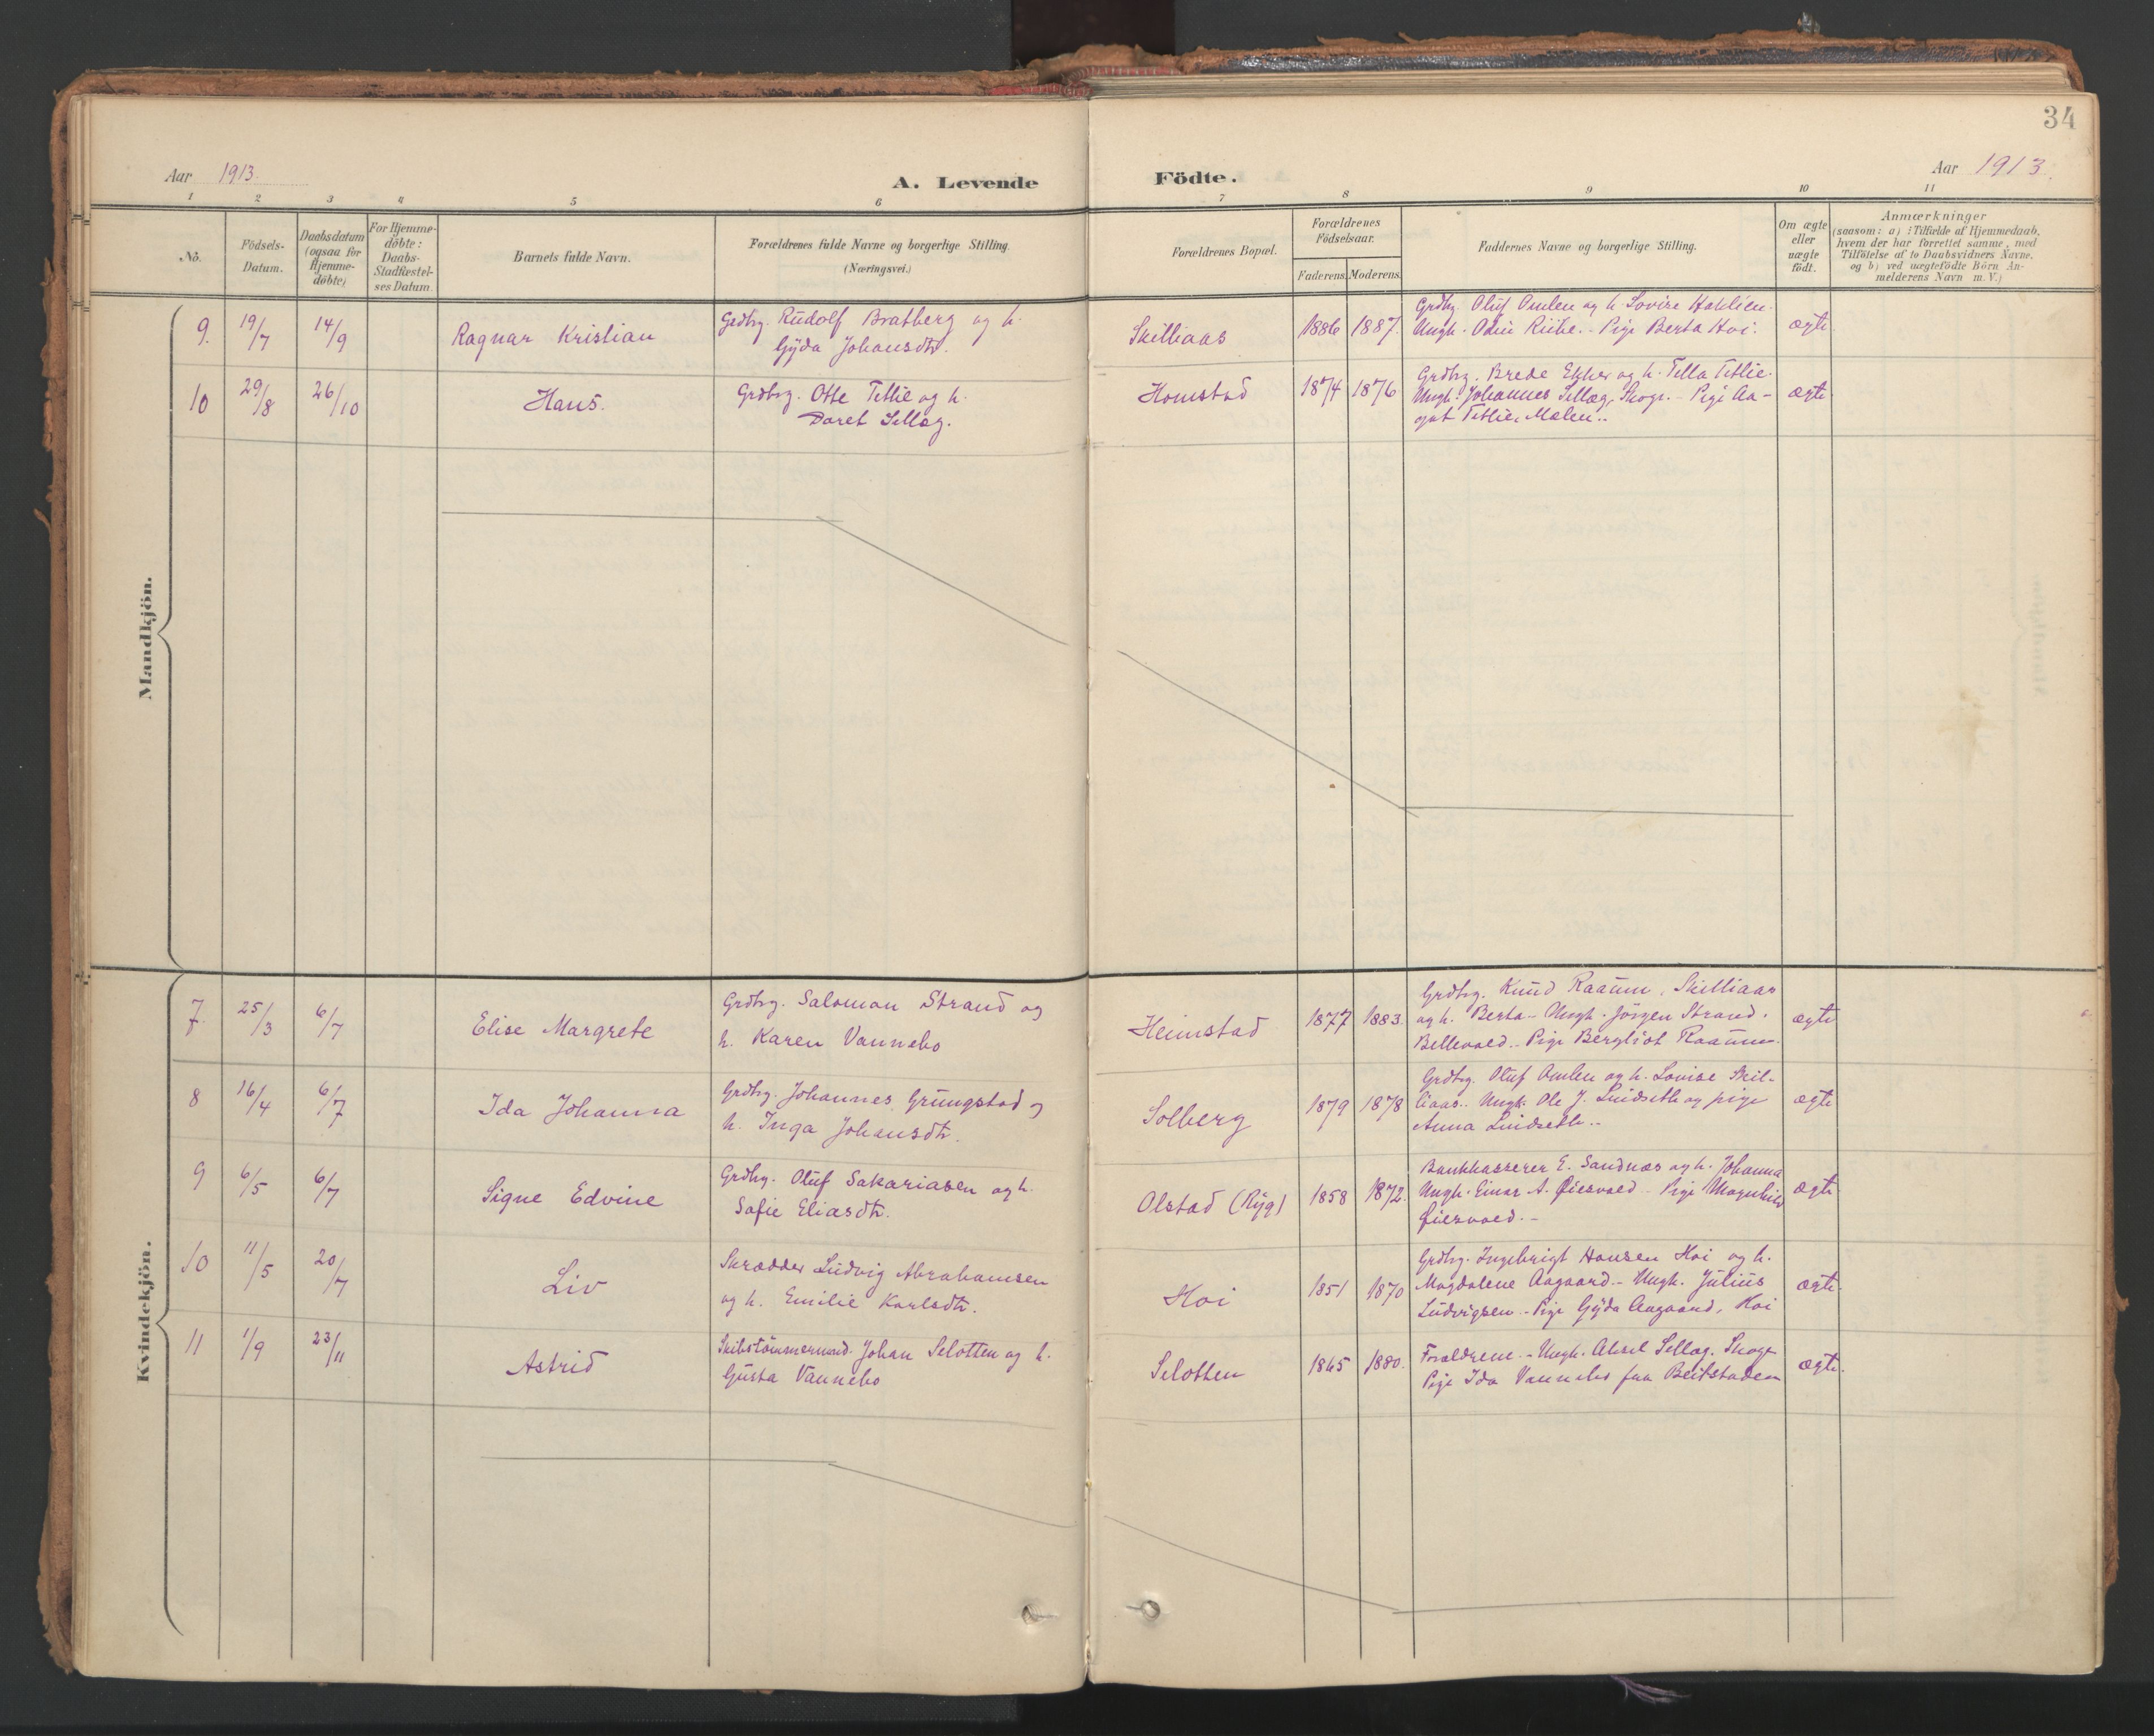 34
Aar 1913.
A. Levende Födte.
Aar 1913.
1 2 3 4 5 6 7 8 9 10 11
No.
Födsels-
Datum.
Daabsdatum
(ogsaa for
Hjemme-
döbte)
For Hjemme-
döbte:
Daabs-
Stadfæstel-
ses Datum.
Barnets fulde Navn.
Forældrenes fulde Navne og borgerlige Stilling.
(Næringsvei.)
Forældrenes Bopæl.
Forældrenes
Födselsaar.
Faderens. Moderens.
Faddernes Navne og borgerlige Stilling.
Om ægte
eller
uægte
födt.
Anmærkninger
(saasom: a) i Tilfælde af Hjemmedaab,
hvem der har forrettet samme, med
Tilföielse af to Daabsvidners Navne,
og b) ved uægtefödte Börn An-
melderens Navn m. V.)
Mandkjön.
9. 19/7 14/9
Ragnar Kristian
Grdbrg. Rudolf Bratberg og h.
Gyda Johansdtr.
Skilliaas
1886 1887.
Grdbrg. Oluf Omlen og h. Lovise
Ungk. Odin - Pige Berta Hoi.
ægte
10 29/8 26/10
Hans.
Grdbrg. Otte Tetlie og h.
Doret Sellæg.
Homstad
1874 1876
Grdbrg. Brede Ekker og h. Tella Tetlie.
Ungk. Johannes Sellæg, Skogn. - Pige Aa-
got Tetlie, Malm..
ægte
Kvindekjön.
7. 25/3 6/7
Elise Margrete
Grdbrg. Salomon Strand og
h. Karen Vannebo
Heimstad
1877 1883.
Grdbrg. Knud Raaum, Skilliaas
og h. Berta - Ungk. Jörgen Strand.
Pige Bergliot Raaum.
ægte
8 16/4 6/7
Ida Johanna
Grdbrg. Johannes Grungstad og
h. Inga Johansdtr.
Solberg
1879 1878
Grdbrg. Oluf Omlen og h. Lovise Skil-
liaas.. Ungk. Ole J. Lindseth og pige
Anna Lindseth..
ægte
9 6/5 6/7
Signe Edvine
Grdbrg. Oluf Sakariasen og h.
Sofie Eliasdtr.
Olstad (Ryg)
1858 1872.
Bankkasserer E. Sandnæs og h. Johanna
Ungk. Einar A. Øiesvold - Pige Magnhild
Øiesvold. -
ægte
10 11/5 20/7
Liv
Skrædder Ludvig Abrahamsen
og h. Emilie Karlsdtr.
Hoi
1851 1870
Grdbrg. Ingebrigt Hansen Hoi og h.
Magdalene Aagaard - Ungk. Julius
Ludvigsen - Pige Gyda Aagaard, Hoi
ægte.
11 1/9 23/11
Astrid
Skibstömmermd. Johan Selotten og h.
Gusta Vannebo
Selotten
1865 1880.
Forældrene. - Ungk. Aksel Sellæg, Skogn
Pige Ida Vannebo fra Beitstaden
ægte.